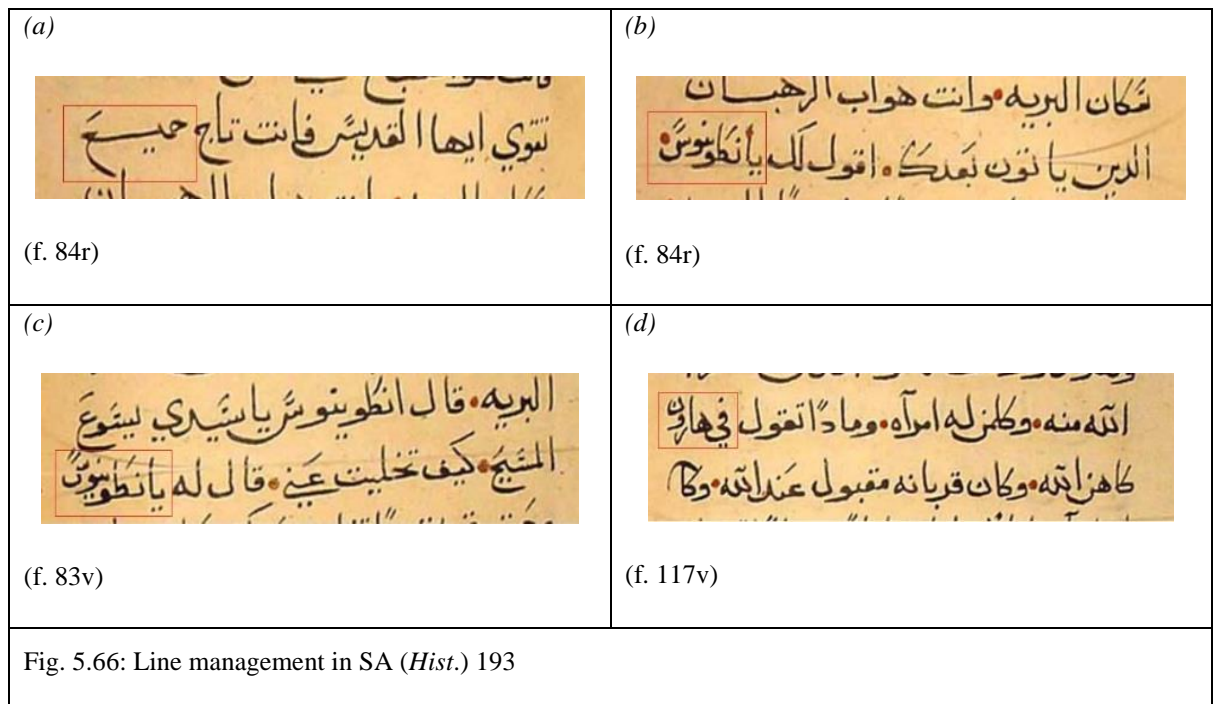 (a)
تتوي ايها القديس فانت تاج جميع
(f. 84r)
(b)
البريه • وانت هو اب الرهبان
الدين ياتون بعدك • اقول لك يا نطونيوس •
(f. 84r)
(c)
البريه • قال انطونيوس يا سيدي يسوع
المسيح • كيف تخليت عني • قال له يا نطونيوس
(f. 83v)
(d)
الله منه • وكلمن له امراه • ومادا تقول في هارون
كاهن الله • وكان قربانه مقبول عند الله • وكا
(f. 117v)
Fig. 5.66: Line management in SA (Hist.) 193